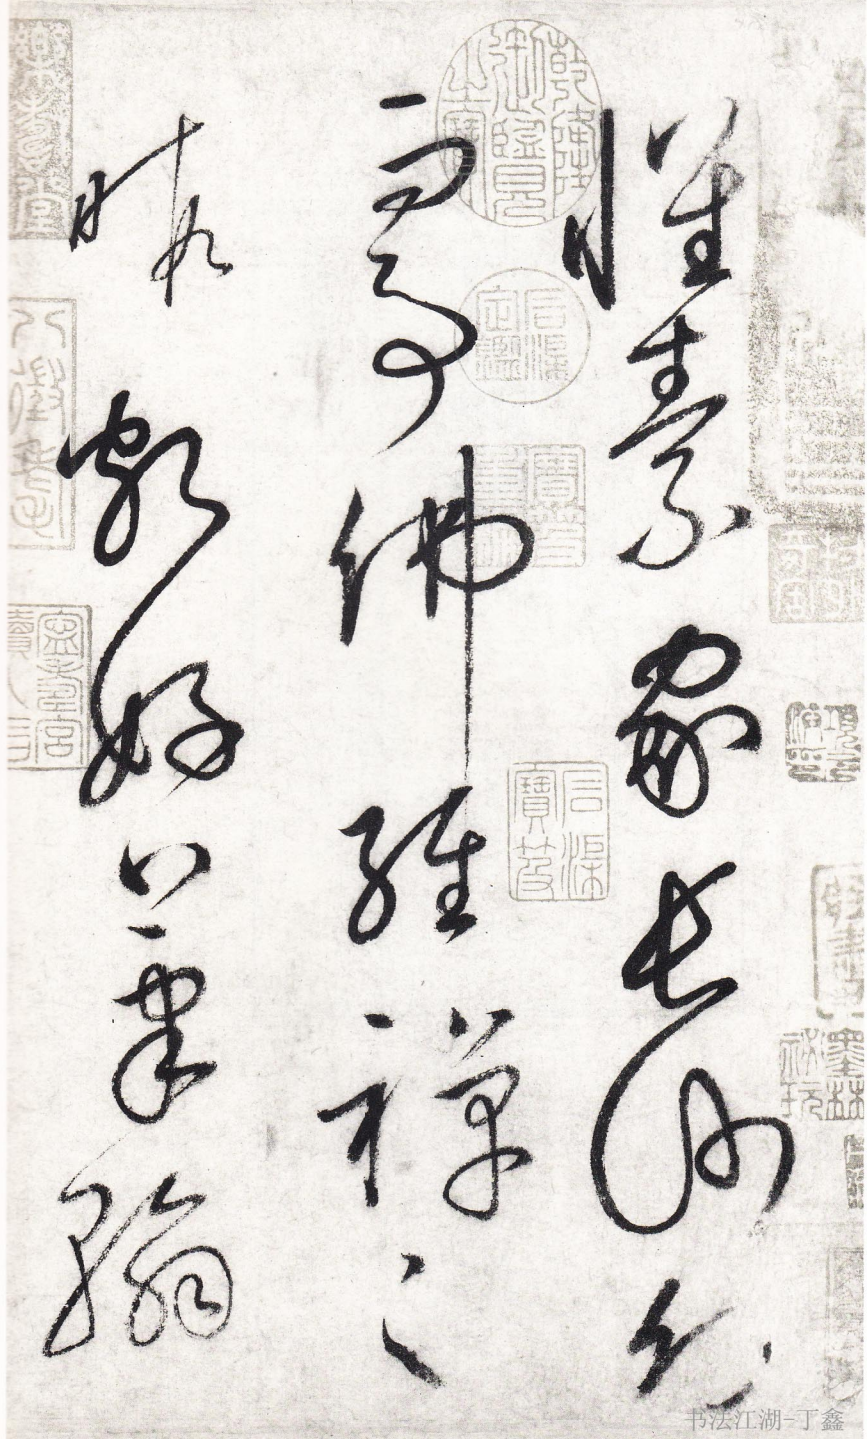 懷素家長沙幼
而事佛經禪之
暇頗好筆翰
乾隆御覽之寶
石渠定鑑
寶笈重編
石渠寶笈
书法江湖-丁鑫